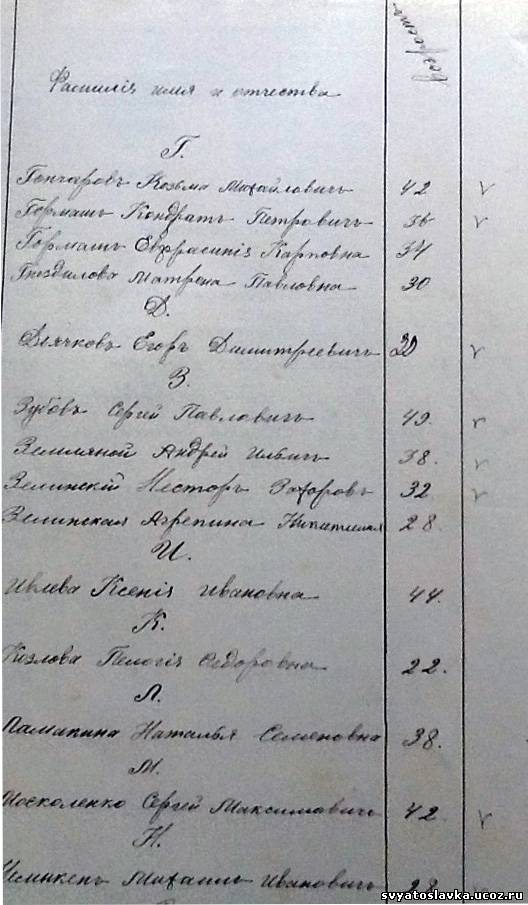 возрастъ
Фамилія имя и отчества
Г.
Гончаровъ Козьма Михайловичъ 42 v
Гормашъ Кондратъ Петровичъ 36 v
Гормашъ Евфрасинія Карповна 34
Гнездилова Матрена Павловна 30
Д.
Дьячковъ Егоръ Димитриевичъ 30 v
З.
Зубовъ Сергей Павловичъ 49. v
Земляной Андрей Ильичъ 38. v
Зелинскій Несторъ Захоровъ 32 v
Зелинская Агрепина 28.
И.
Ивлева Ксенія Ивановна 44.
К.
Козлова Пелогія Сидоровна 22.
Л.
Наталья Семеновна 38.
М.
Москаленко Сергей Максимовичъ 42 v
Н.
Михаилъ Ивановичъ 28
svyatoslavka.ucoz.ru